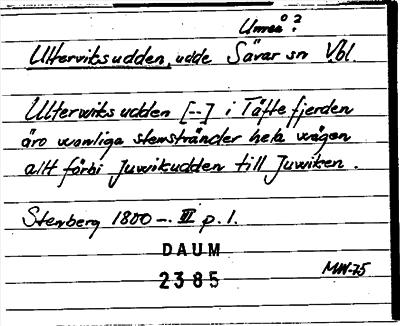 Umeå?
Ulterviksudden, udde Sävar sn Vbl.
Ulterwiks udden [--] i Täfte fjerden
äro wanliga stenstränder hela wägen
allt förbi Juwikudden till Juwiken.
Stenberg 1800-. III p. 1.
DAUM
2385
MW-75